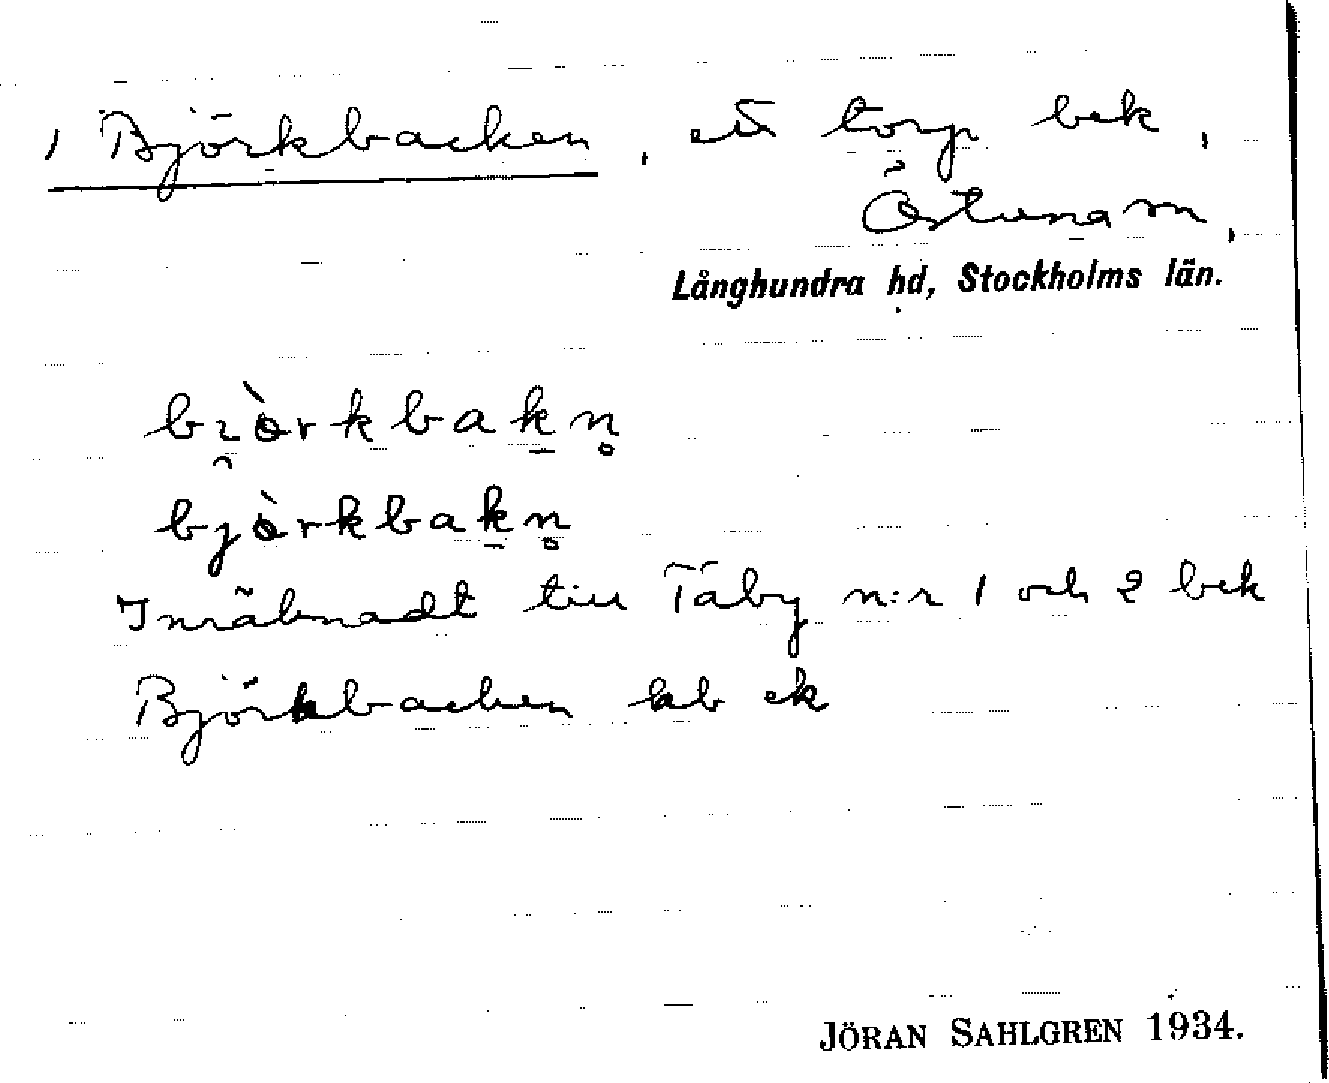 1 Björkbacken, ett torp bek,
Östuna sn,
Långhundra hd, Stockholms län.
bi̯ò̤rkbakn̥
bjò̤rkbakn̥
Inräknadt till Täby n:r 1 och 2 bek
Björkbacken kb ek
JÖRAN SAHLGREN 1934.